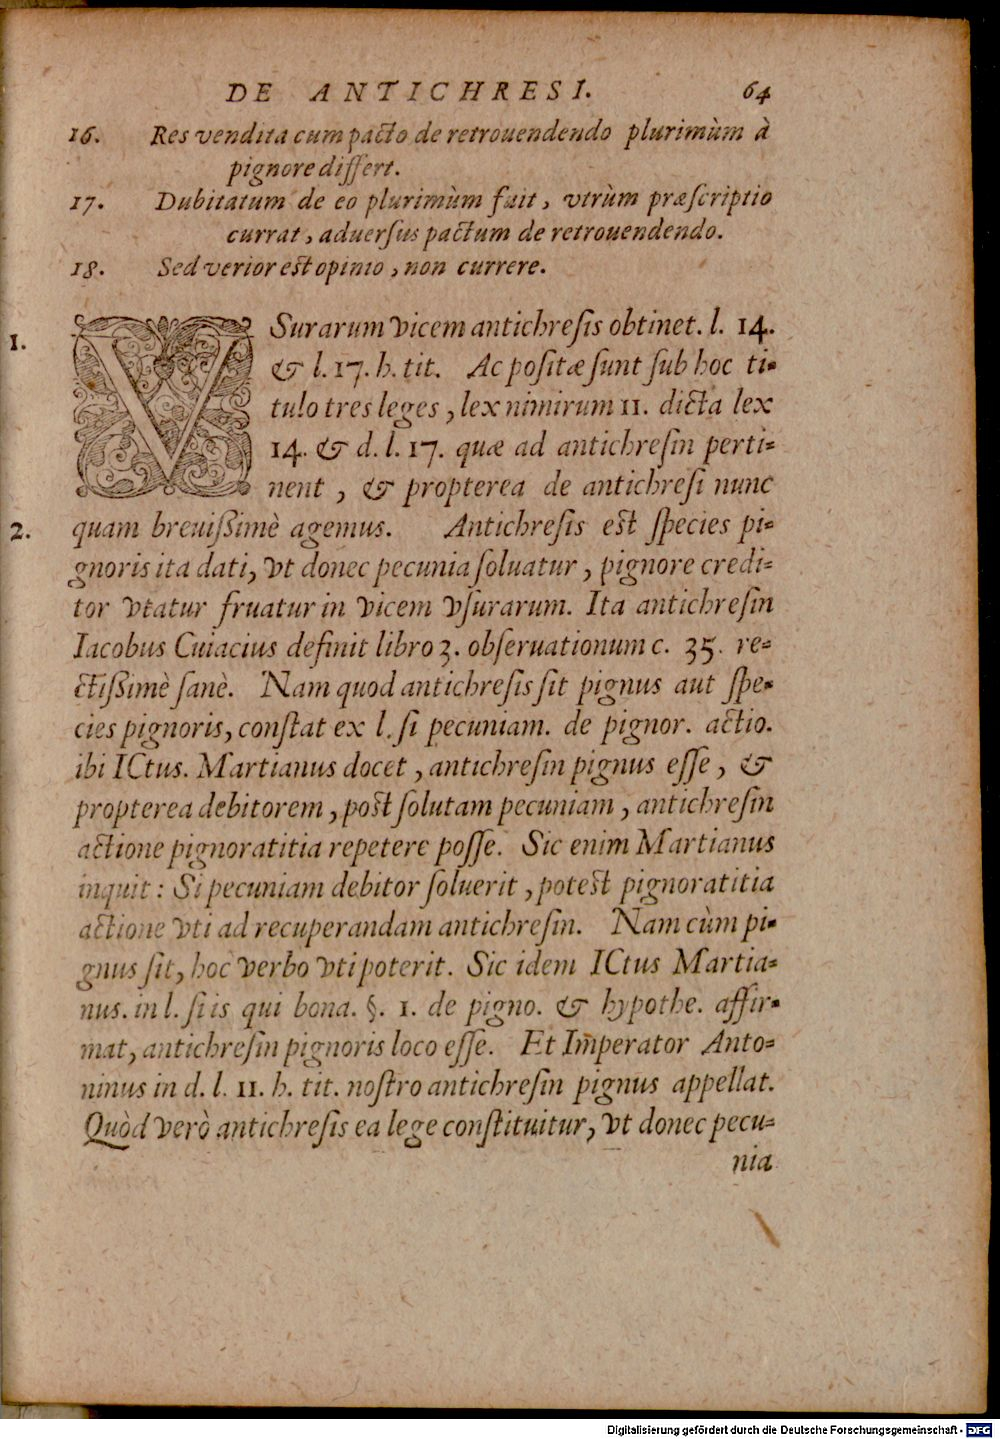 DE ANTICHRESI. 64
16. Res vendita cum pacto de retrouendendo plurimùm à
pignore differt.
17. Dubitatum de eo plurimùm fuit, vtrùm præſcriptio
currat, aduerſus pactum de retrouendendo.
18. Sed verior eſt opinio, non currere.
1. VSurarum vicem antichreſis obtinet. l. 14.
& l. 17. h. tit. Ac poſitæ ſunt ſub hoc ti-
tulo tres leges, lex nimirum 11. dicta lex
14. & d. l. 17. quæ ad antichreſin perti-
nent, & propterea de antichreſi nunc
2. quam breuiſſimè agemus. Antichreſis eſt ſpecies pi-
gnoris ita dati, vt donec pecunia ſoluatur, pignore credi-
tor vtatur fruatur in vicem vſurarum. Ita antichreſin
Iacobus Cuiacius definit libro 3. obſeruationum c. 35. re-
ctiſſimè ſanè. Nam quod antichreſis ſit pignus aut ſpe-
cies pignoris, conſtat ex l. ſi pecuniam. de pignor. actio.
ibi ICtus. Martianus docet, antichreſin pignus eſſe, &
propterea debitorem, poſt ſolutam pecuniam, antichreſin
actione pignoratitia repetere poſſe. Sic enim Martianus
inquit: Si pecuniam debitor ſoluerit, poteſt pignoratitia
actione vti ad recuperandam antichreſin. Nam cùm pi-
gnus ſit, hoc verbo vti poterit. Sic idem ICtus Martia-
nus. in l. ſi is qui bona. §. 1. de pigno. & hypothe. affir-
mat, antichreſin pignoris loco eſſe. Et Imperator Anto-
ninus in d. l. 11. h. tit. noſtro antichreſin pignus appellat.
Quòd verò antichreſis ea lege conſtituitur, vt donec pecu-
nia
Digitalisierung gefördert durch die Deutsche Forschungsgemeinschaft - DFG